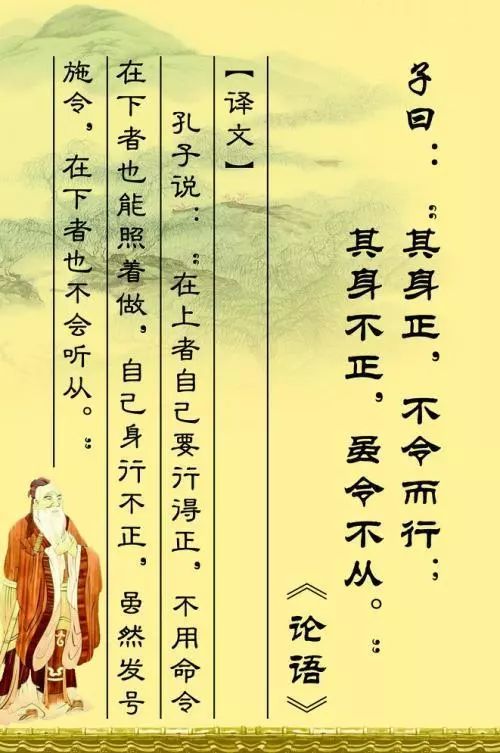 子曰：“其身正，不令而行；
其身不正，虽令不从。”
《论语》
【译文】
孔子说：“在上者自己要行得正，不用命令
在下者也能照着做，自己身行不正，虽然发号
施令，在下者也不会听从。”